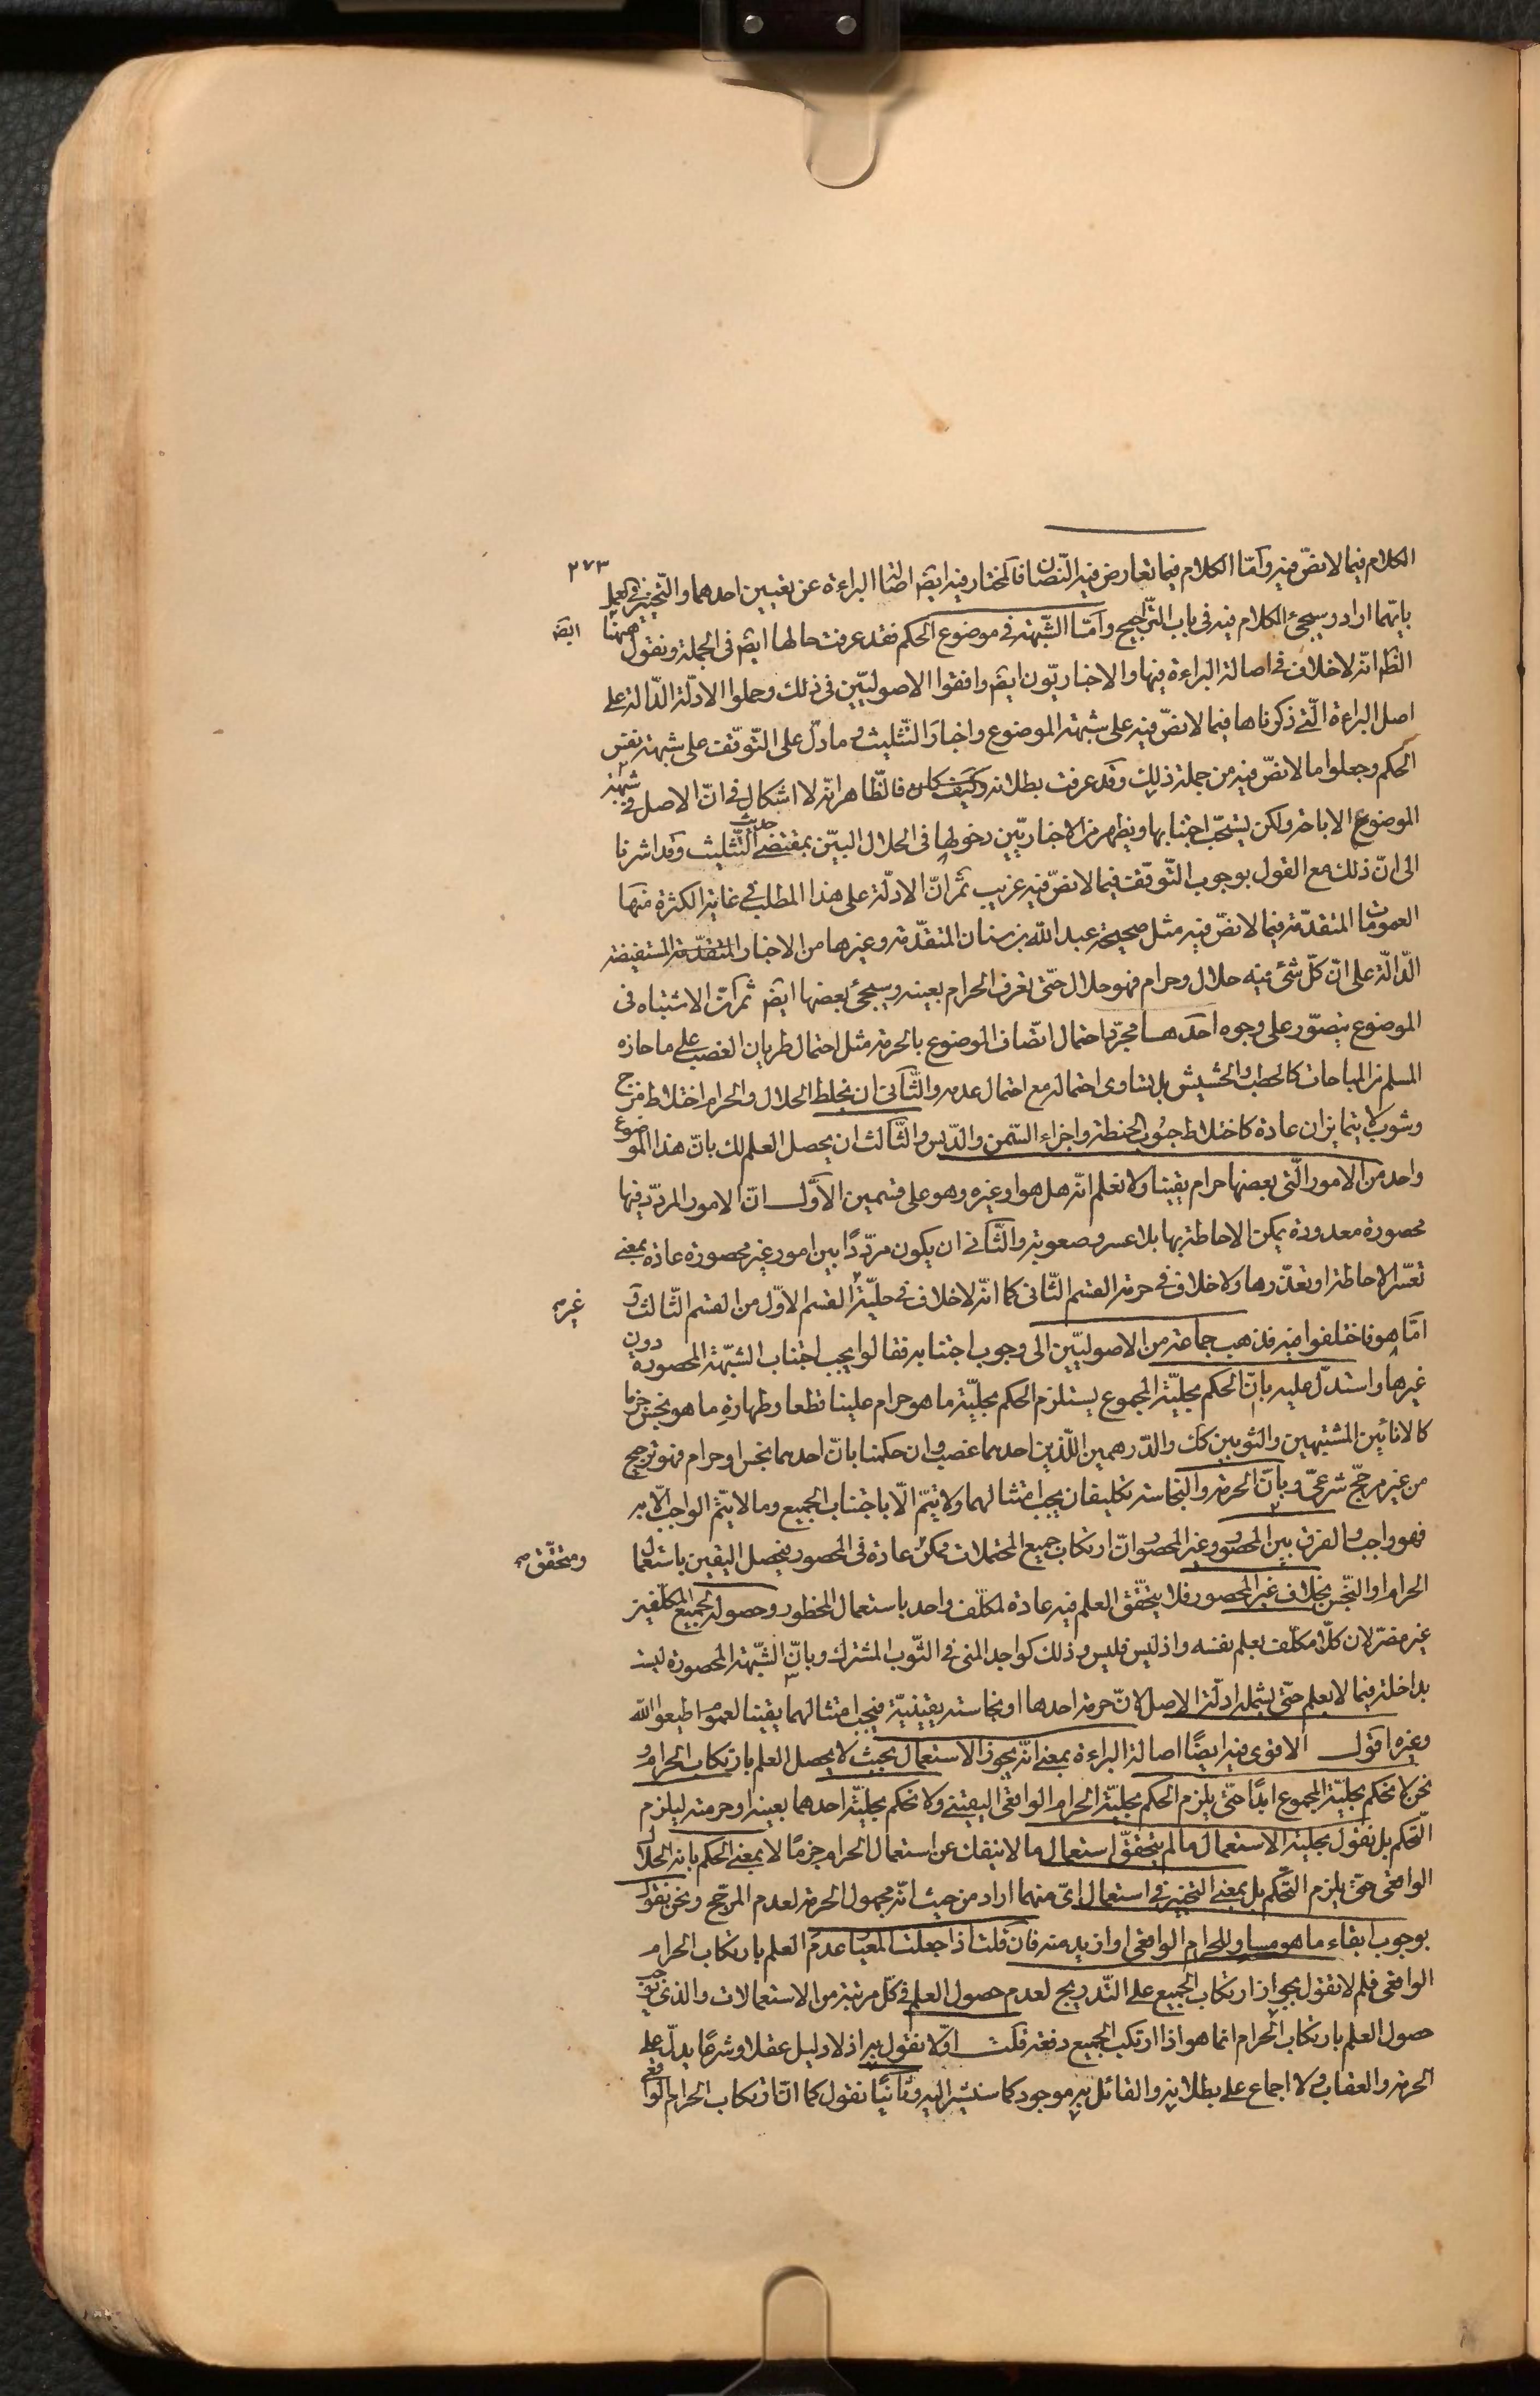 ٢٧٣
الكلام فيما لا نصّ فيه وامّا الكلام فيما تعارض فيه النّصّان فالمختار فيه ايضً اصالة البراءة عن تعيين احدهما والتّخيير فى العمل
بايّهما اراد وسيجئ الكلام فيه فى باب التّراجيح وامّا الشّبهة فى موضوع الحكم فقد عرفت حالها ايضً فى الجملة ونقول ههنا ايضً
الظَ انّه لا خلاف فى اصالة البراءة فيها والاخباريّون ايضً وافقوا الاصوليّين فى ذلك وحملوا الادلّة الدّالة على
اصل البراءة الّتى ذكرناها فيما لا نصّ فيه على شبهة الموضوع واخبار التّثليث وما دلّ على التّوقّف على شبهة نفس
الحكم وجعلوا ما لا نصّ فيه من جملة ذلك وقد عرفت بطلانه وكيف كان فالظّاهر انّه لا اشكال فى انّ الاصل فى شبهة
الموضوع الاباحة ولكن يستحبّ اجتنابها ويظهر من الاخباريّين دخولها فى الحلال البيّن بمقتضى حديث التّثليث وقد اشرنا
الى انّ ذلك مع القول بوجوب التّوقّف فيما لا نصّ فيه غريب ثم انّ الادلّة على هذا المطلب فى غاية الكثرة منها
العمومات المتقدّمة فيما لا نصّ فيه مثل صحيحة عبد الله بن سنان المتقدّمة وغيرها من الاخبار المتقدّمة المستفيضة
الدّالّة على انّ كلّ شئ فيه حلال وحرام فهو حلال حتّى تعرف الحرام بعينه وسيجئ بعضها ايضً ثم انّ الاشتباه فى
الموضوع يتصوّر على وجوه احدها مجرّد احتمال اتّصاف الموضوع بالحرمة مثل احتمال طريان الغصب على ما حازه
المسلم من المباحات كالحطب والحشيش بل تساوى احتماله مع احتمال عدمه والثّانى ان يختلط الحلال والحرام اختلاط مزج
وشوب لا يتمايزان عادة كاختلاط حبوب الحنطة واجزاء السّمن والدّبس والثّالث ان يحصل العلم لك بانّ هذا الموضوع
واحد من الامور الّتى بعضها حرام يقينا ولا تعلم انّه هل هو او غيره وهو على قسمين الاوّل انّ الامور المردّد فيها
محصورة معدودة يمكن الاحاطة بها بلا عسر وصعوبة والثّانى ان يكون مردّدًا بين امور غير محصورة عادة بمعنى
تعسّر الاحاطة او تعذّرها ولا خلاف فى حرمة القسم الثّانى كما انّه لا خلاف فى حلّيّة القسم الاوّل من القسم الثّالث و غيره
امّا هو فاختلفوا فيه فذهب جماعة من الاصوليّين الى وجوب اجتنابه فقالوا يجب اجتناب الشّبهة المحصورة دون
غيرها واستدلّ عليه بانّ الحكم بحلّيّة المجموع يستلزم الحكم بحلّيّة ما هو حرام علينا قطعا وطهارة ما هو نجس جزما
كالانائين المشتبهين والثوبين كك والدّرهمين اللّذين احدهما غصب وان حكمنا بانّ احدهما نجس او حرام فهو ترجيح
من غير مرجّح شرعىّ وبانّ الحرمة والنجاسة تكليفان يجب امتثالهما ولا يتمّ الّا باجتناب الجميع وما لا يتمّ الواجب الّا به
فهو واجب والفرق بين المحصور وغير المحصور انّ ارتكاب جميع المحتملات ممكن عادة فى المحصور فيحصل اليقين باستعمال ومتحقّق صح
الحرام او النّجس بخلاف غير المحصور فلا يتحقّق العلم فيه عادة لمكلّف واحد باستعمال المحظور وحصوله لجميع المكلّفين
غير مضرّ لان كلّا مكلّف بعلم نفسه واذ ليس فليس وذلك كواجد المنى فى الثّوب المشترك وبانّ الشّبهة المحصورة ليست
بداخلة فيما لا يعلم حتّى يشمله ادلّة الاصل لانّ حرمة احدها او نجاسته يقينيّة فيجب امتثالهما يقينا لعموم اطيعوا الله
وغيره اقول الاقوى فيه ايضًا اصالة البراءة بمعنى انّه يجوز الاستعمال بحيث لا يحصل العلم بارتكاب الحرام و
نحن لا نحكم بحلّيّة المجموع ابدًا حتّى يلزم الحكم بحلّيّة الحرام الواقعى اليقينى ولا نحكم بحلّيّة احدهما بعينه او حرمته ليلزم
التّحكم بل نقول بحلّيّة الاستعمال ما لم يتحقّق استعمال ما لا ينفك عن استعمال الحرام جزمًا لا بمعنى الحكم بانه الحلال
الواقعى حتى يلزم التّحكم بل بمعنى التخيير فى استعمال اىّ منهما اراد من حيث انّه مجهول الحرمة لعدم المرجّح ونحن نقول
بوجوب ابقاء ما هو مساو للحرام الواقعى او ازيد منه فان قلت اذا جعلت المعيار عدم العلم بارتكاب الحرام
الواقعى فلم لا تقول بجواز ارتكاب الجميع على التّدريج لعدم حصول العلم فى كلّ مرتبة من الاستعمالات والذى يوجب
حصول العلم بارتكاب الحرام انما هو اذا ارتكب الجميع دفعة قلت اوّلا نقول به اذ لا دليل عقلا وشرعًا يدلّ على
الحرمة والعقاب ولا اجماع على بطلانه والقائل به موجود كما سنشير اليه وثانيًا نقول كما انّ ارتكاب الحرام الواقعى